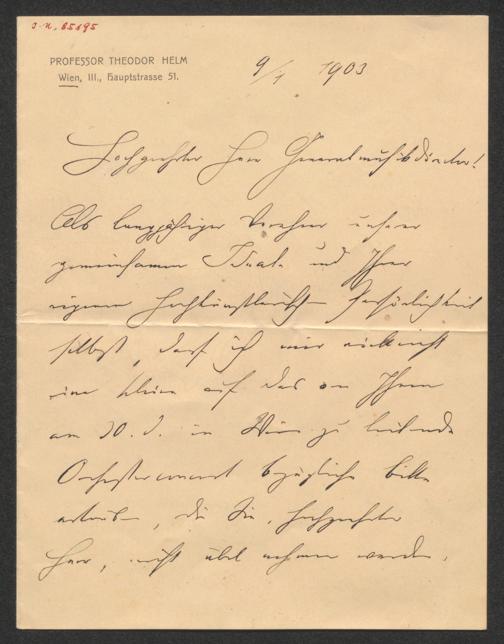 I.N. 65195
PROFESSOR THEODOR HELM
Wien, III., Hauptstrasse 51.
9/1 1903
Hochgeehrter Herr Generalmusikdirector!
Als langjähriger Verehrer unserer
gemeinsamen Ideale und Ihrer
eigenen hochkünstlerischen Persönlichkeit
selbst, darf ich mir vielleicht
eine kleine auf das von Ihnen
am 20. d. in Wien zu leitende
Orchesterconcert bezügliche Bitte
erlauben, die Sie, hochgeehrter
Herr, nicht übel nehmen werden.